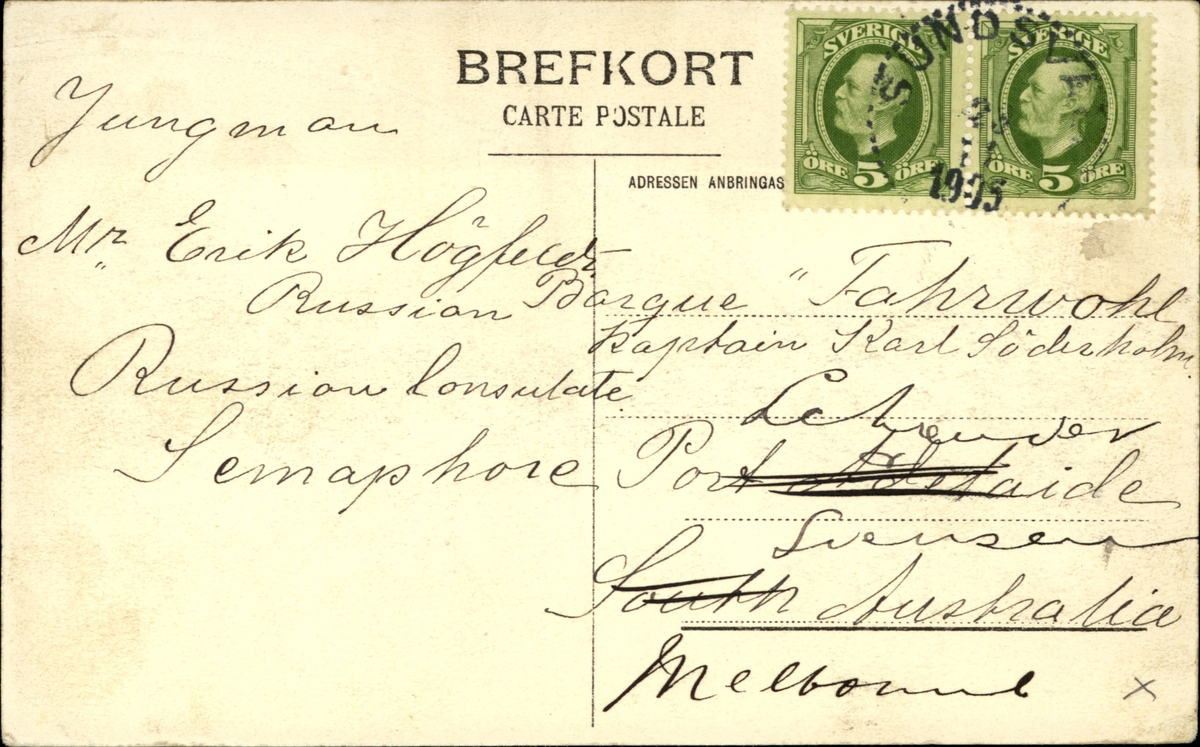 BREFKORT
CARTE POSTALE
ADRESSEN ANBRINGAS
SVERIGE
ÖRE 5 ÖRE
SVERIGE
ÖRE 5 ÖRE
1905
Jungman
Mr Erik Högfeldt
Russian Barque "Fahrwohl
Kaptain Karl Söderholm
Russian Consulate
Semaphore Port Adelaide
Svensen
South Australia
Melbourne